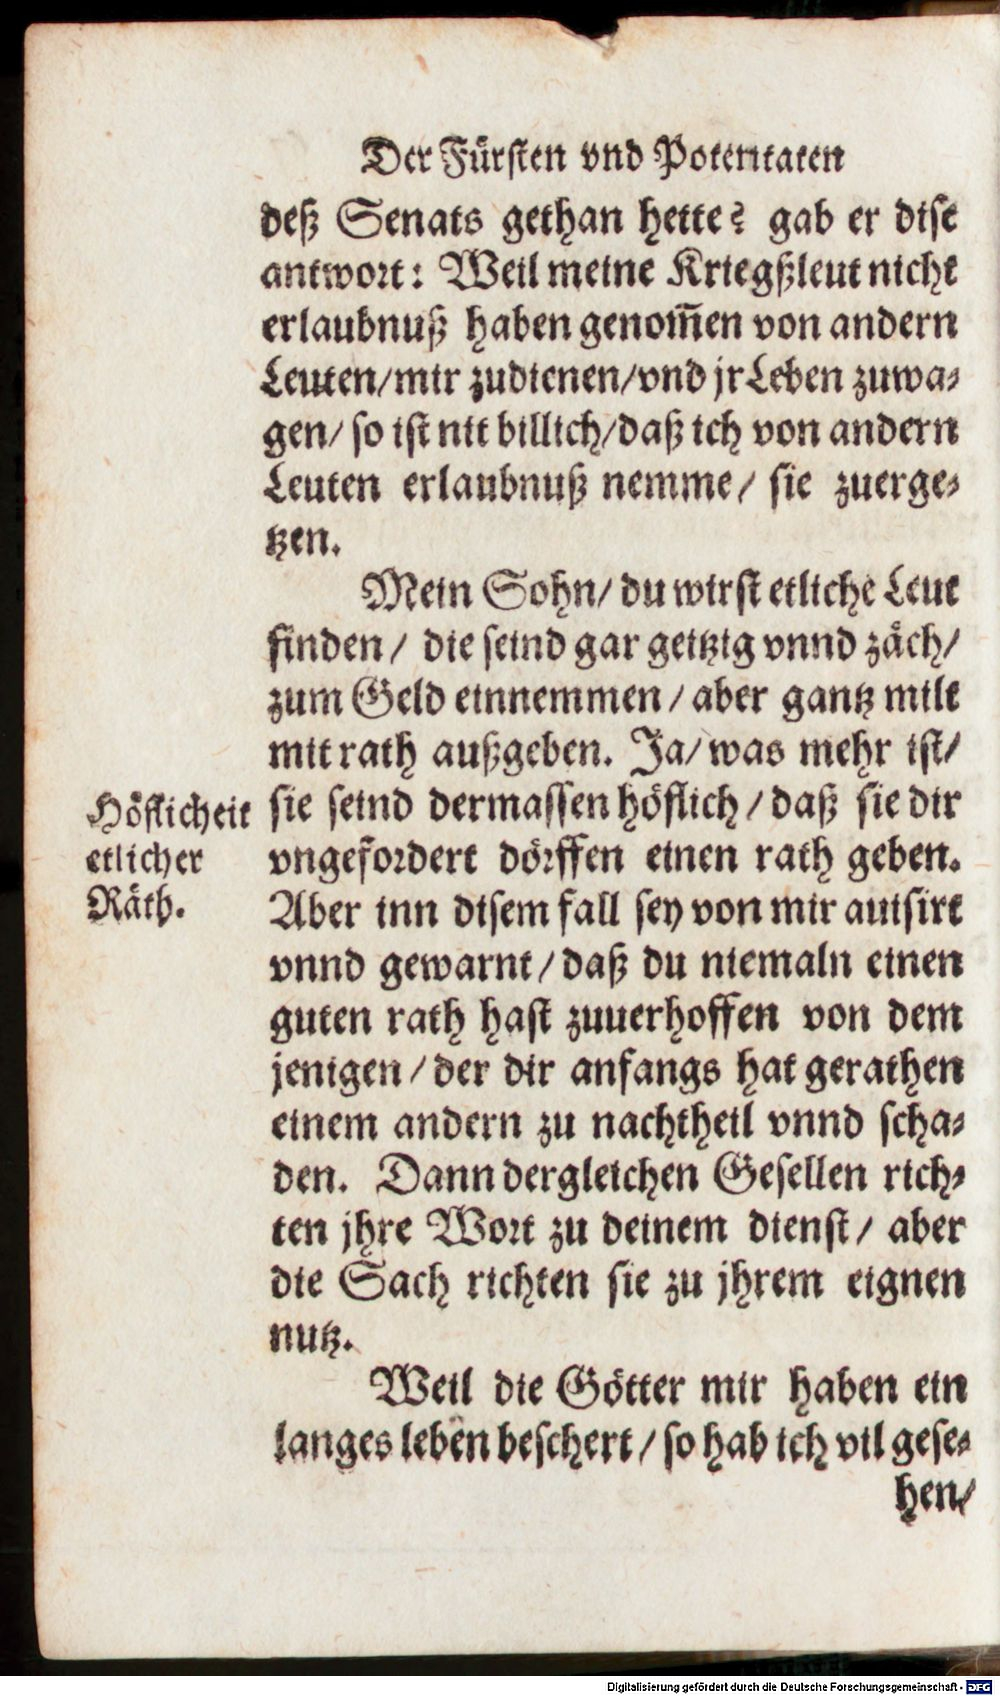 Der Fürsten vnd Potentaten
deß Senats gethan hette? gab er dise
antwort: Weil meine Kriegßleut nicht
erlaubnuß haben genom̃en von andern
Leuten/mir zudienen/vnd jr Leben zuwa-
gen/ so ist nit billich/daß ich von andern
Leuten erlaubnuß nemme/ sie zuerge-
tzen.
Mein Sohn/ du wirst etliche Leut
finden/ die seind gar geitzig vnnd zäch/
zum Geld einnemmen/ aber gantz milt
mit rath außgeben. Ja/ was mehr ist/
Höflicheit
etlicher
Räth.
sie seind dermassen höflich/ daß sie dir
vngefordert dörffen einen rath geben.
Aber inn disem fall sey von mir auisirt
vnnd gewarnt/ daß du niemaln einen
guten rath hast zuuerhoffen von dem
jenigen/ der dir anfangs hat gerathen
einem andern zu nachtheil vnnd scha-
den. Dann dergleichen Gesellen rich-
ten jhre Wort zu deinem dienst/ aber
die Sach richten sie zu jhrem eignen
nutz.
Weil die Götter mir haben ein
langes leben beschert/ so hab ich vil gese-
hen/
Digitalisierung gefördert durch die Deutsche Forschungsgemeinschaft - DFG